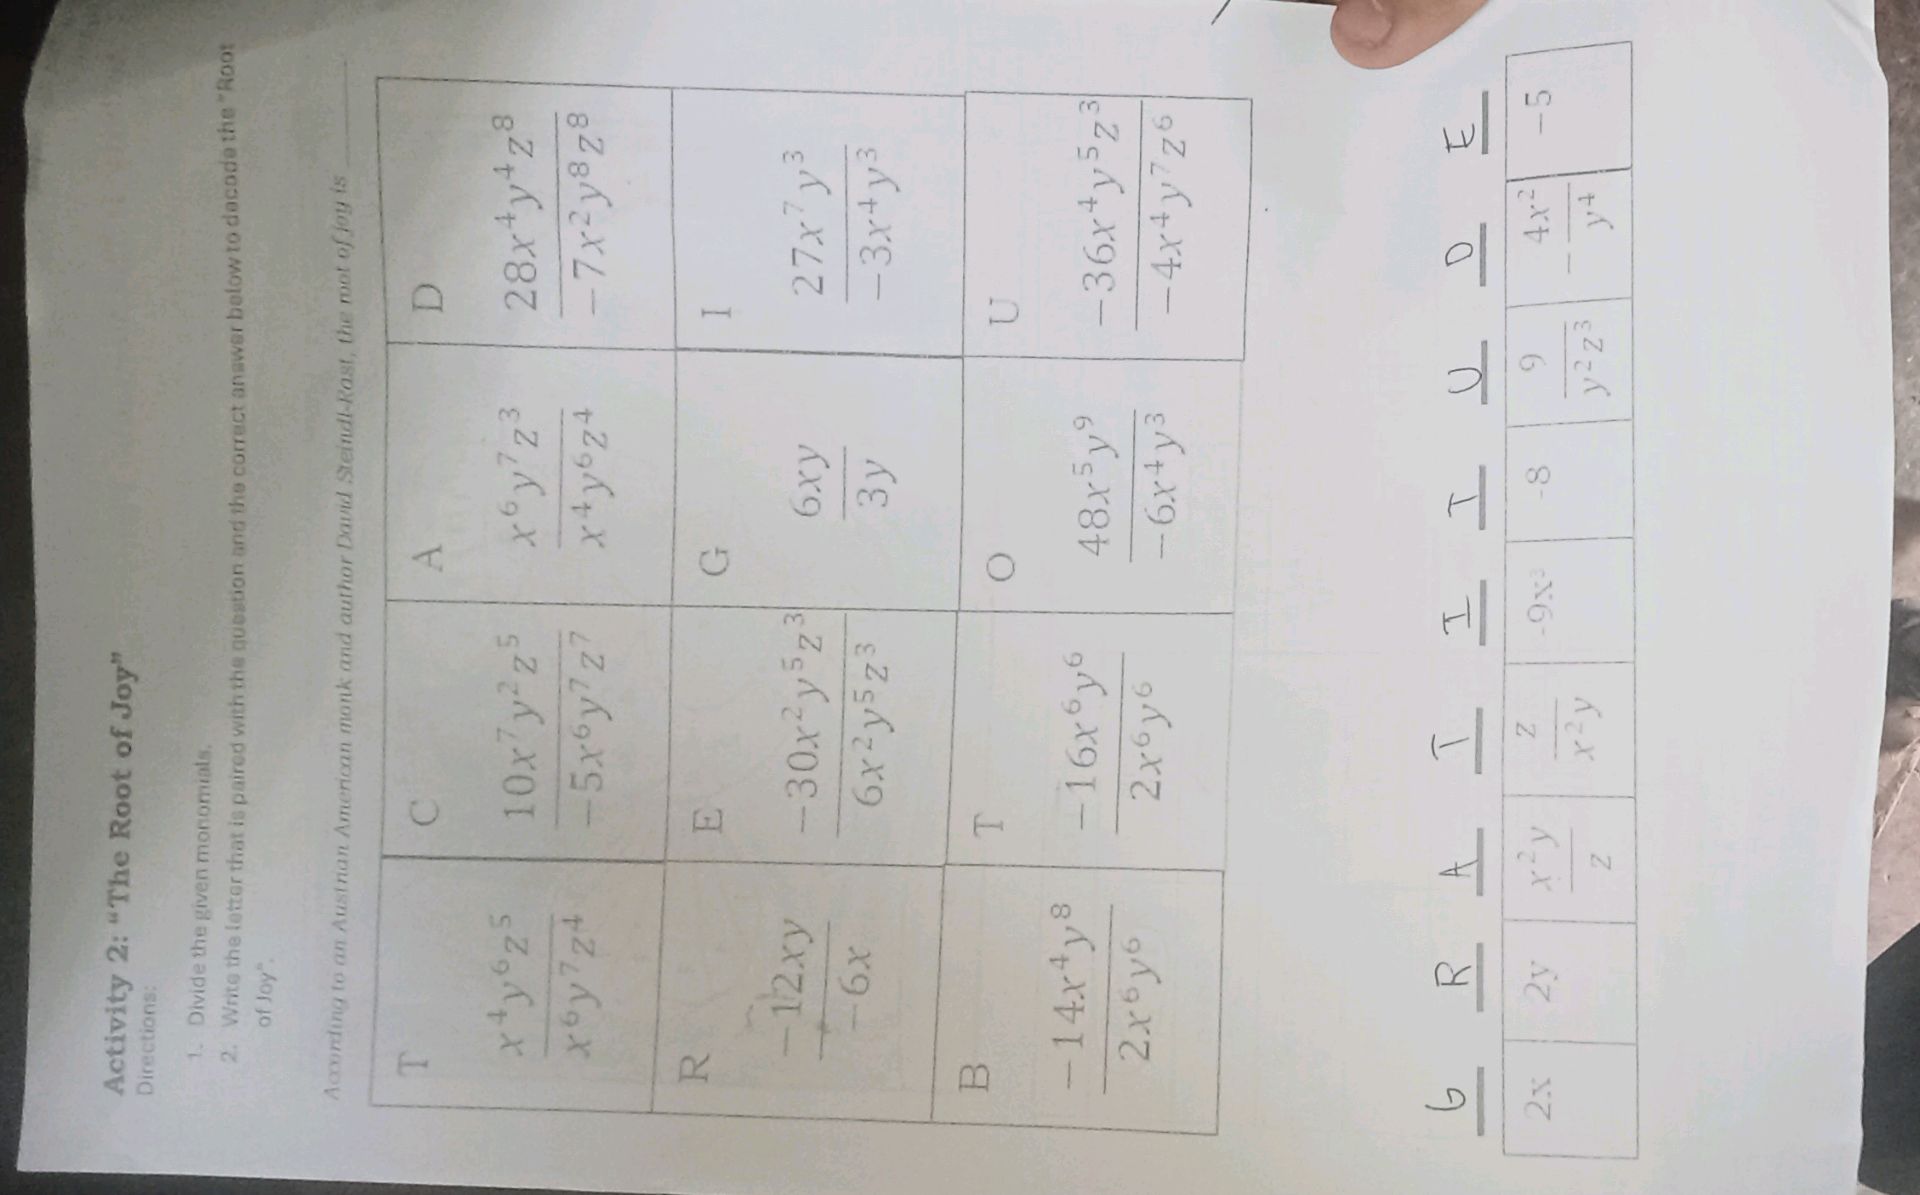 Activity 2: “The Root of Joy”
Directions:
1. Divide the given monomials.
2. Write the letter that is paired with the question and the correct answer below to decode the “Root
of Joy”.
According to an Austrian American monk and author David Steindl-Rast, the root of joy is ______
T C A D
x⁴y⁶z⁵/x⁶y⁷z⁴ 10x⁷y²z⁵/−5x⁶y⁷z⁷ x⁶y⁷z³/x⁴y⁶z⁴ 28x⁴y⁴z⁸/−7x²y⁸z⁸
R E G I
−12xy/−6x −30x²y⁵z³/6x²y⁵z³ 6xy/3y 27x⁷y³/−3x⁴y³
B T O U
−14x⁴y⁸/2x⁶y⁶ −16x⁶y⁶/2x⁶y⁶ 48x⁵y⁹/−6x⁴y³ −36x⁴y⁵z³/−4x⁴y⁷z⁶
G R A T I T U D E
2x 2y x²y/z z/x²y -9x³ -8 9/y²z³ −4x²/y⁴ −5